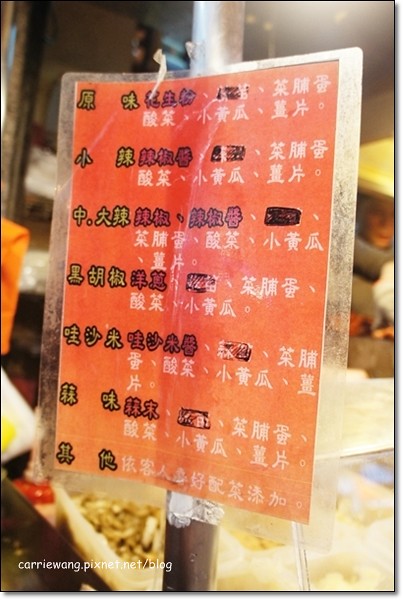 原 味 花生粉、、菜脯蛋
酸菜、小黃瓜、薑片。
小 辣 辣椒醬、、菜脯蛋
酸菜、小黃瓜、薑片。
中.大辣 辣椒、辣椒醬、、
菜脯蛋、酸菜、小黃瓜
、薑片。
黑胡椒 洋蔥、、菜脯蛋、
酸菜、小黃瓜。
哇沙米 哇沙米醬、、菜脯
蛋、酸菜、小黃瓜、薑
片。
蒜 味 蒜末、、菜脯蛋、
酸菜、小黃瓜、薑片。
其 他 依客人喜好配菜添加。
carriewang.pixnet.net/blog